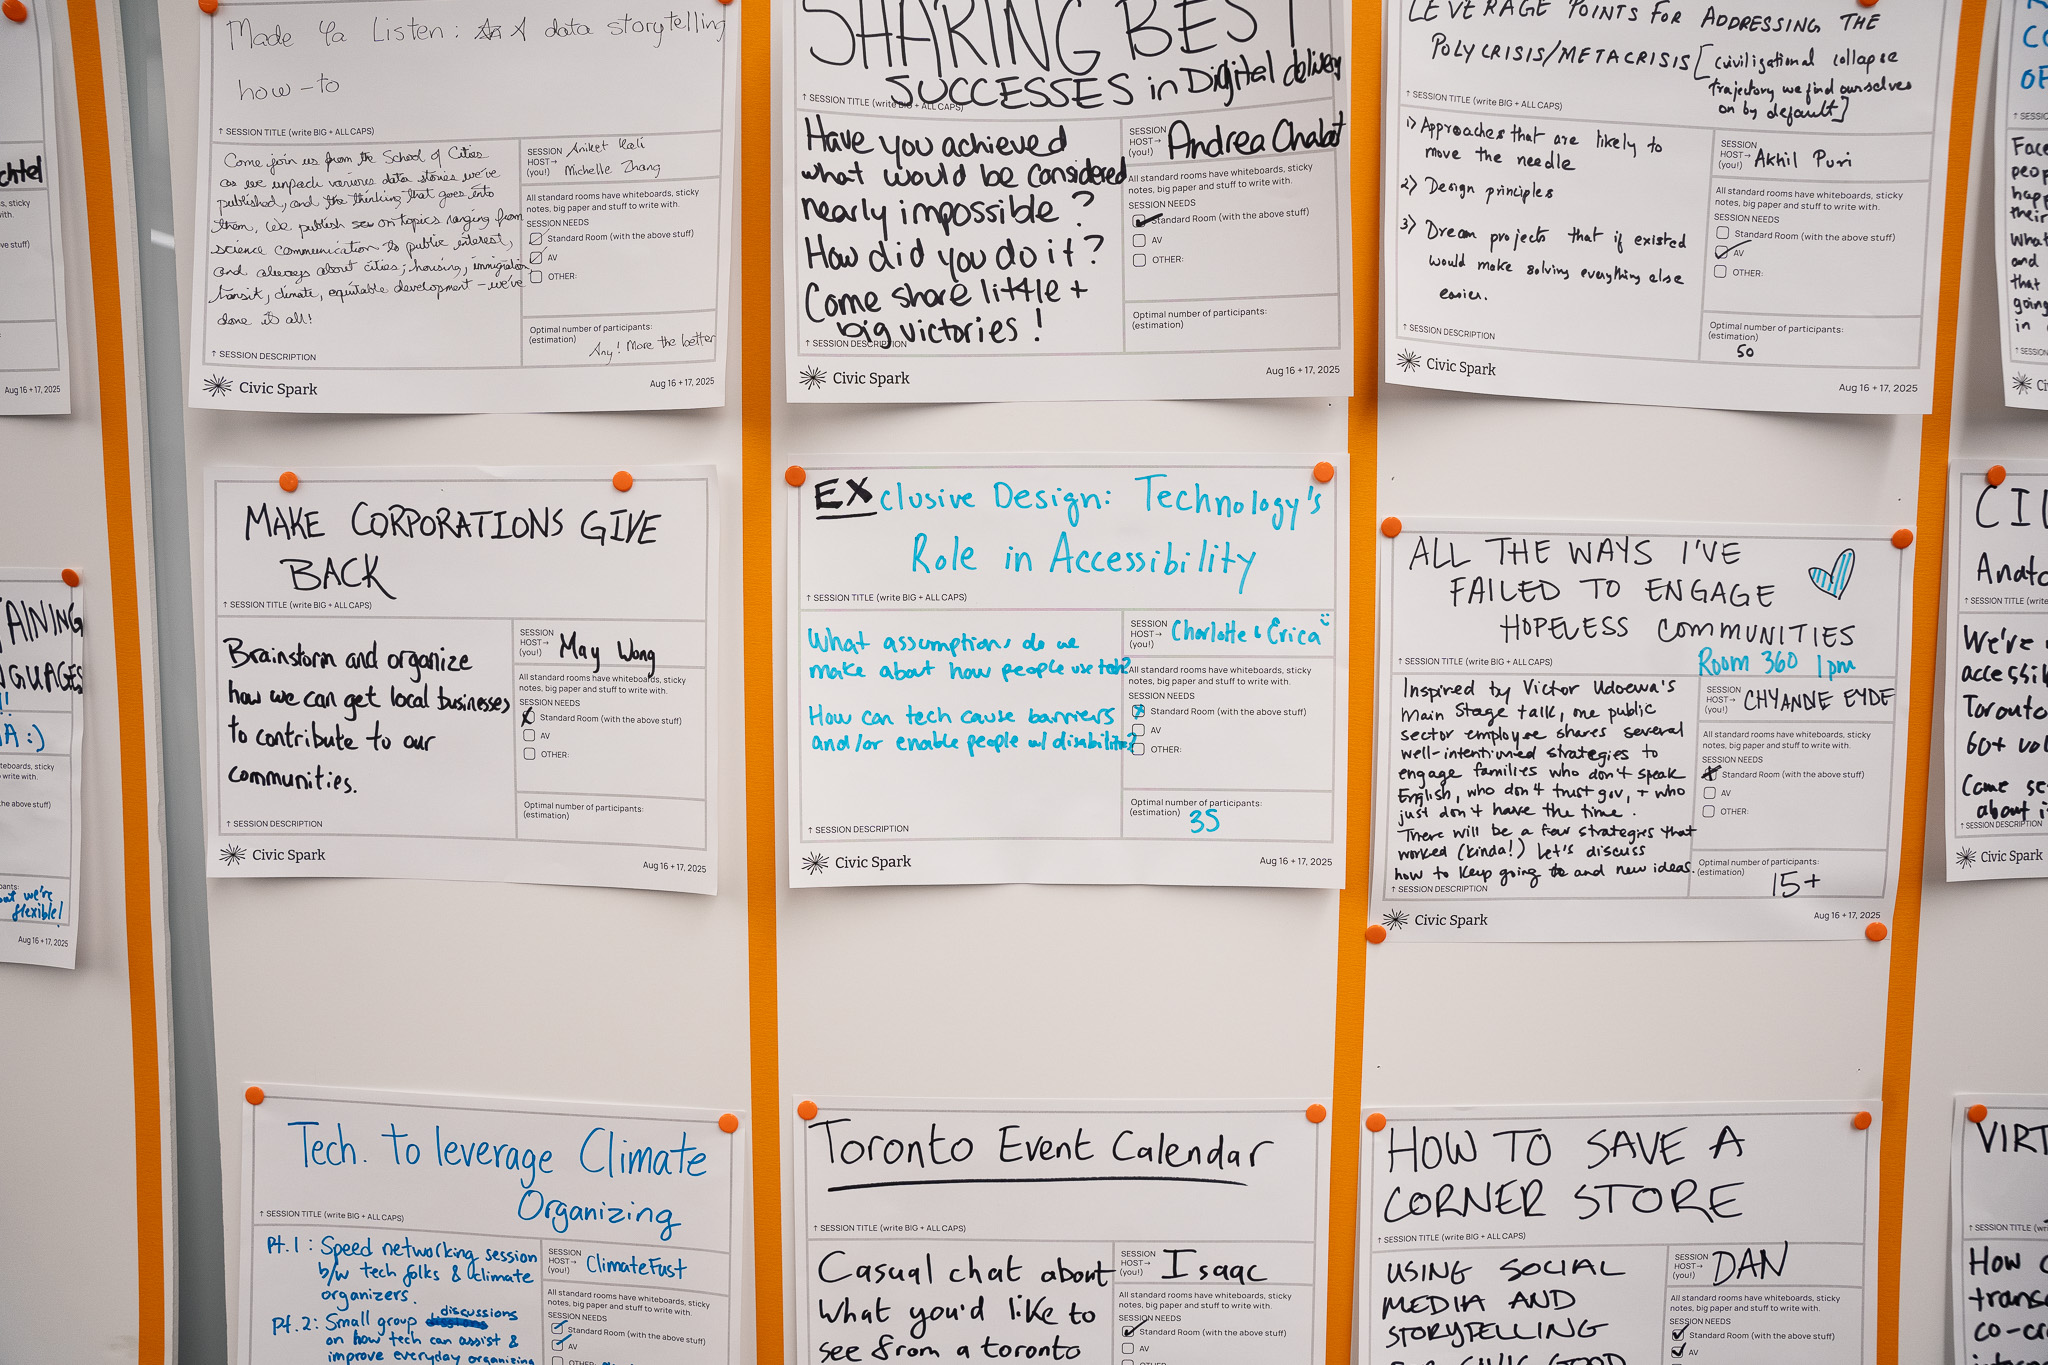 Made Ya Listen: A data storytelling
how-to
↑ SESSION TITLE (write BIG + ALL CAPS)
Come join us from the School of Cities
as we unpack various data stories we've
published, and the thinking that goes into
them. We publish on topics ranging from
science communication to public interest,
and always about cities; housing, immigration,
transit, climate, equitable development - we've
done it all!
↑ SESSION DESCRIPTION
SESSION
HOST→
(you!)
Aniket Kali
Michelle Zhang
All standard rooms have whiteboards, sticky
notes, big paper and stuff to write with.
SESSION NEEDS
Standard Room (with the above stuff)
AV
OTHER:
Optimal number of participants:
(estimation)
Any! More the better
Civic Spark
Aug 16 + 17, 2025
SHARING BEST
SUCCESSES in Digital delivery
↑ SESSION TITLE (write BIG + ALL CAPS)
Have you achieved
what would be considered
nearly impossible?
How did you do it?
Come share little +
big victories!
↑ SESSION DESCRIPTION
SESSION
HOST→
(you!)
Andrea Chabot
All standard rooms have whiteboards, sticky
notes, big paper and stuff to write with.
SESSION NEEDS
Standard Room (with the above stuff)
AV
OTHER:
Optimal number of participants:
(estimation)
Civic Spark
Aug 16 + 17, 2025
LEVERAGE POINTS FOR ADDRESSING THE
POLYCRISIS/METACRISIS [civilizational collapse
trajectory we find ourselves
on by default]
↑ SESSION TITLE (write BIG + ALL CAPS)
1) Approaches that are likely to
move the needle
2) Design principles
3) Dream projects that if existed
would make solving everything else
easier.
↑ SESSION DESCRIPTION
SESSION
HOST→
(you!)
Akhil Puri
All standard rooms have whiteboards, sticky
notes, big paper and stuff to write with.
SESSION NEEDS
Standard Room (with the above stuff)
AV
OTHER:
Optimal number of participants:
(estimation)
50
Civic Spark
Aug 16 + 17, 2025
MAKE CORPORATIONS GIVE
BACK
↑ SESSION TITLE (write BIG + ALL CAPS)
Brainstorm and organize
how we can get local businesses
to contribute to our
communities.
↑ SESSION DESCRIPTION
SESSION
HOST→
(you!)
May Wong
All standard rooms have whiteboards, sticky
notes, big paper and stuff to write with.
SESSION NEEDS
Standard Room (with the above stuff)
AV
OTHER:
Optimal number of participants:
(estimation)
Civic Spark
Aug 16 + 17, 2025
EXclusive Design: Technology's
Role in Accessibility
↑ SESSION TITLE (write BIG + ALL CAPS)
What assumptions do we
make about how people use tech?
How can tech cause barriers
and/or enable people w/ disabilities?
↑ SESSION DESCRIPTION
SESSION
HOST→
(you!)
Charlotte & Erica
All standard rooms have whiteboards, sticky
notes, big paper and stuff to write with.
SESSION NEEDS
Standard Room (with the above stuff)
AV
OTHER:
Optimal number of participants:
(estimation)
35
Civic Spark
Aug 16 + 17, 2025
ALL THE WAYS I'VE
FAILED TO ENGAGE
HOPELESS COMMUNITIES
↑ SESSION TITLE (write BIG + ALL CAPS)
Room 360 1pm
Inspired by Victor Udoewa's
Main Stage talk, one public
sector employee shares several
well-intentioned strategies to
engage families who don't speak
English, who don't trust gov, + who
just don't have the time.
There will be a few strategies that
worked (kinda!) Let's discuss
how to keep going and new ideas.
↑ SESSION DESCRIPTION
SESSION
HOST→
(you!)
CHYANNE EYDE
All standard rooms have whiteboards, sticky
notes, big paper and stuff to write with.
SESSION NEEDS
Standard Room (with the above stuff)
AV
OTHER:
Optimal number of participants:
(estimation)
15+
Civic Spark
Aug 16 + 17, 2025
Tech. to leverage Climate
Organizing
↑ SESSION TITLE (write BIG + ALL CAPS)
Pt.1: Speed networking session
b/w tech folks & climate
organizers.
Pt.2: Small group discussions
on how tech can assist &
improve everyday organizing
SESSION
HOST→
(you!)
ClimateFast
All standard rooms have whiteboards, sticky
notes, big paper and stuff to write with.
SESSION NEEDS
Standard Room (with the above stuff)
AV
Toronto Event Calendar
↑ SESSION TITLE (write BIG + ALL CAPS)
Casual chat about
what you'd like to
see from a toronto
SESSION
HOST→
(you!)
Isaac
All standard rooms have whiteboards, sticky
notes, big paper and stuff to write with.
SESSION NEEDS
Standard Room (with the above stuff)
AV
HOW TO SAVE A
CORNER STORE
↑ SESSION TITLE (write BIG + ALL CAPS)
USING SOCIAL
MEDIA AND
STORYTELLING
FOR CIVIC GOOD
SESSION
HOST→
(you!)
DAN
All standard rooms have whiteboards, sticky
notes, big paper and stuff to write with.
SESSION NEEDS
Standard Room (with the above stuff)
AV
Aug 16 + 17, 2025
we're
flexible!
Aug 16 + 17, 2025
We're
Toronto
60+
Come
about
↑ SESSION DESCRIPTION
Civic Spark
How